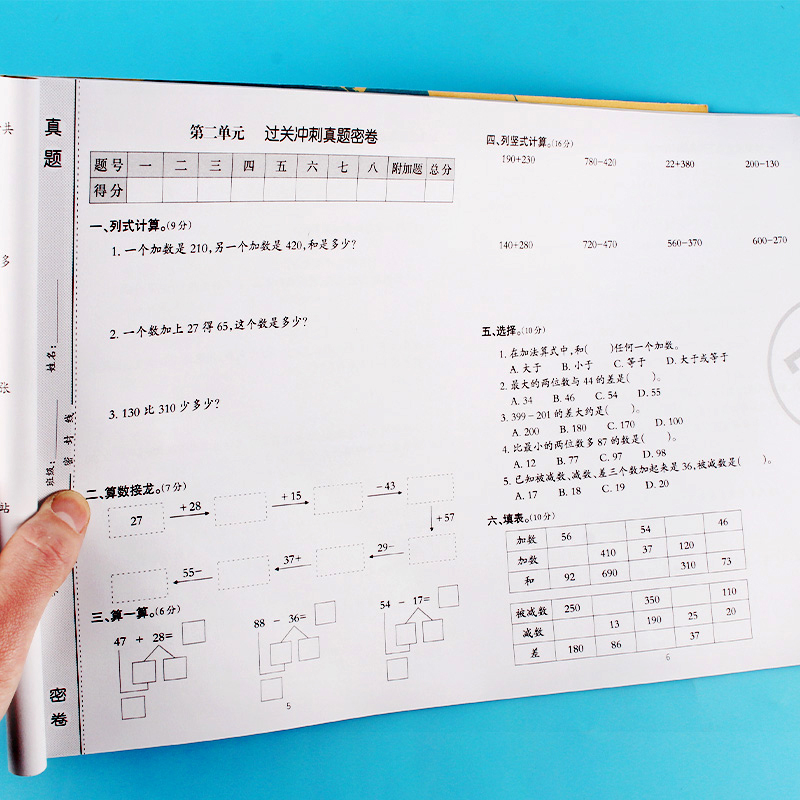 共
多
张
站
真
题
姓名：
班级：
密 封 线
密
卷
第二单元 过关冲刺真题密卷
题号 一 二 三 四 五 六 七 八 附加题 总分
得分
一、列式计算。(9分)
1. 一个加数是210,另一个加数是420,和是多少?
2. 一个数加上27得65,这个数是多少?
3. 130比310少多少?
二、算数接龙。(7分)
27 +28 +15 −43
+57
55− 37+ 29−
三、算一算。(6分)
47 + 28= 88 − 36= 54 − 17=
5
四、列竖式计算。(16分)
190+230 780−420 22+380 200−130
140+280 720−470 560−370 600−270
五、选择。(10分)
1. 在加法算式中,和( )任何一个加数。
A. 大于 B. 小于 C. 等于 D. 大于或等于
2. 最大的两位数与44的差是( )。
A. 34 B. 46 C. 54 D. 55
3. 399−201的差大约是( )。
A. 200 B. 180 C. 170 D. 100
4. 比最小的两位数多87的数是( )。
A. 12 B. 77 C. 97 D. 98
5. 已知被减数、减数、差三个数加起来是36,被减数是( )。
A. 17 B. 18 C. 19 D. 20
六、填表。(10分)
加数 56 54 46
加数 410 37 120
和 92 690 310 73
被减数 250 350 110
减数 13 190 25 20
差 180 86 37
6